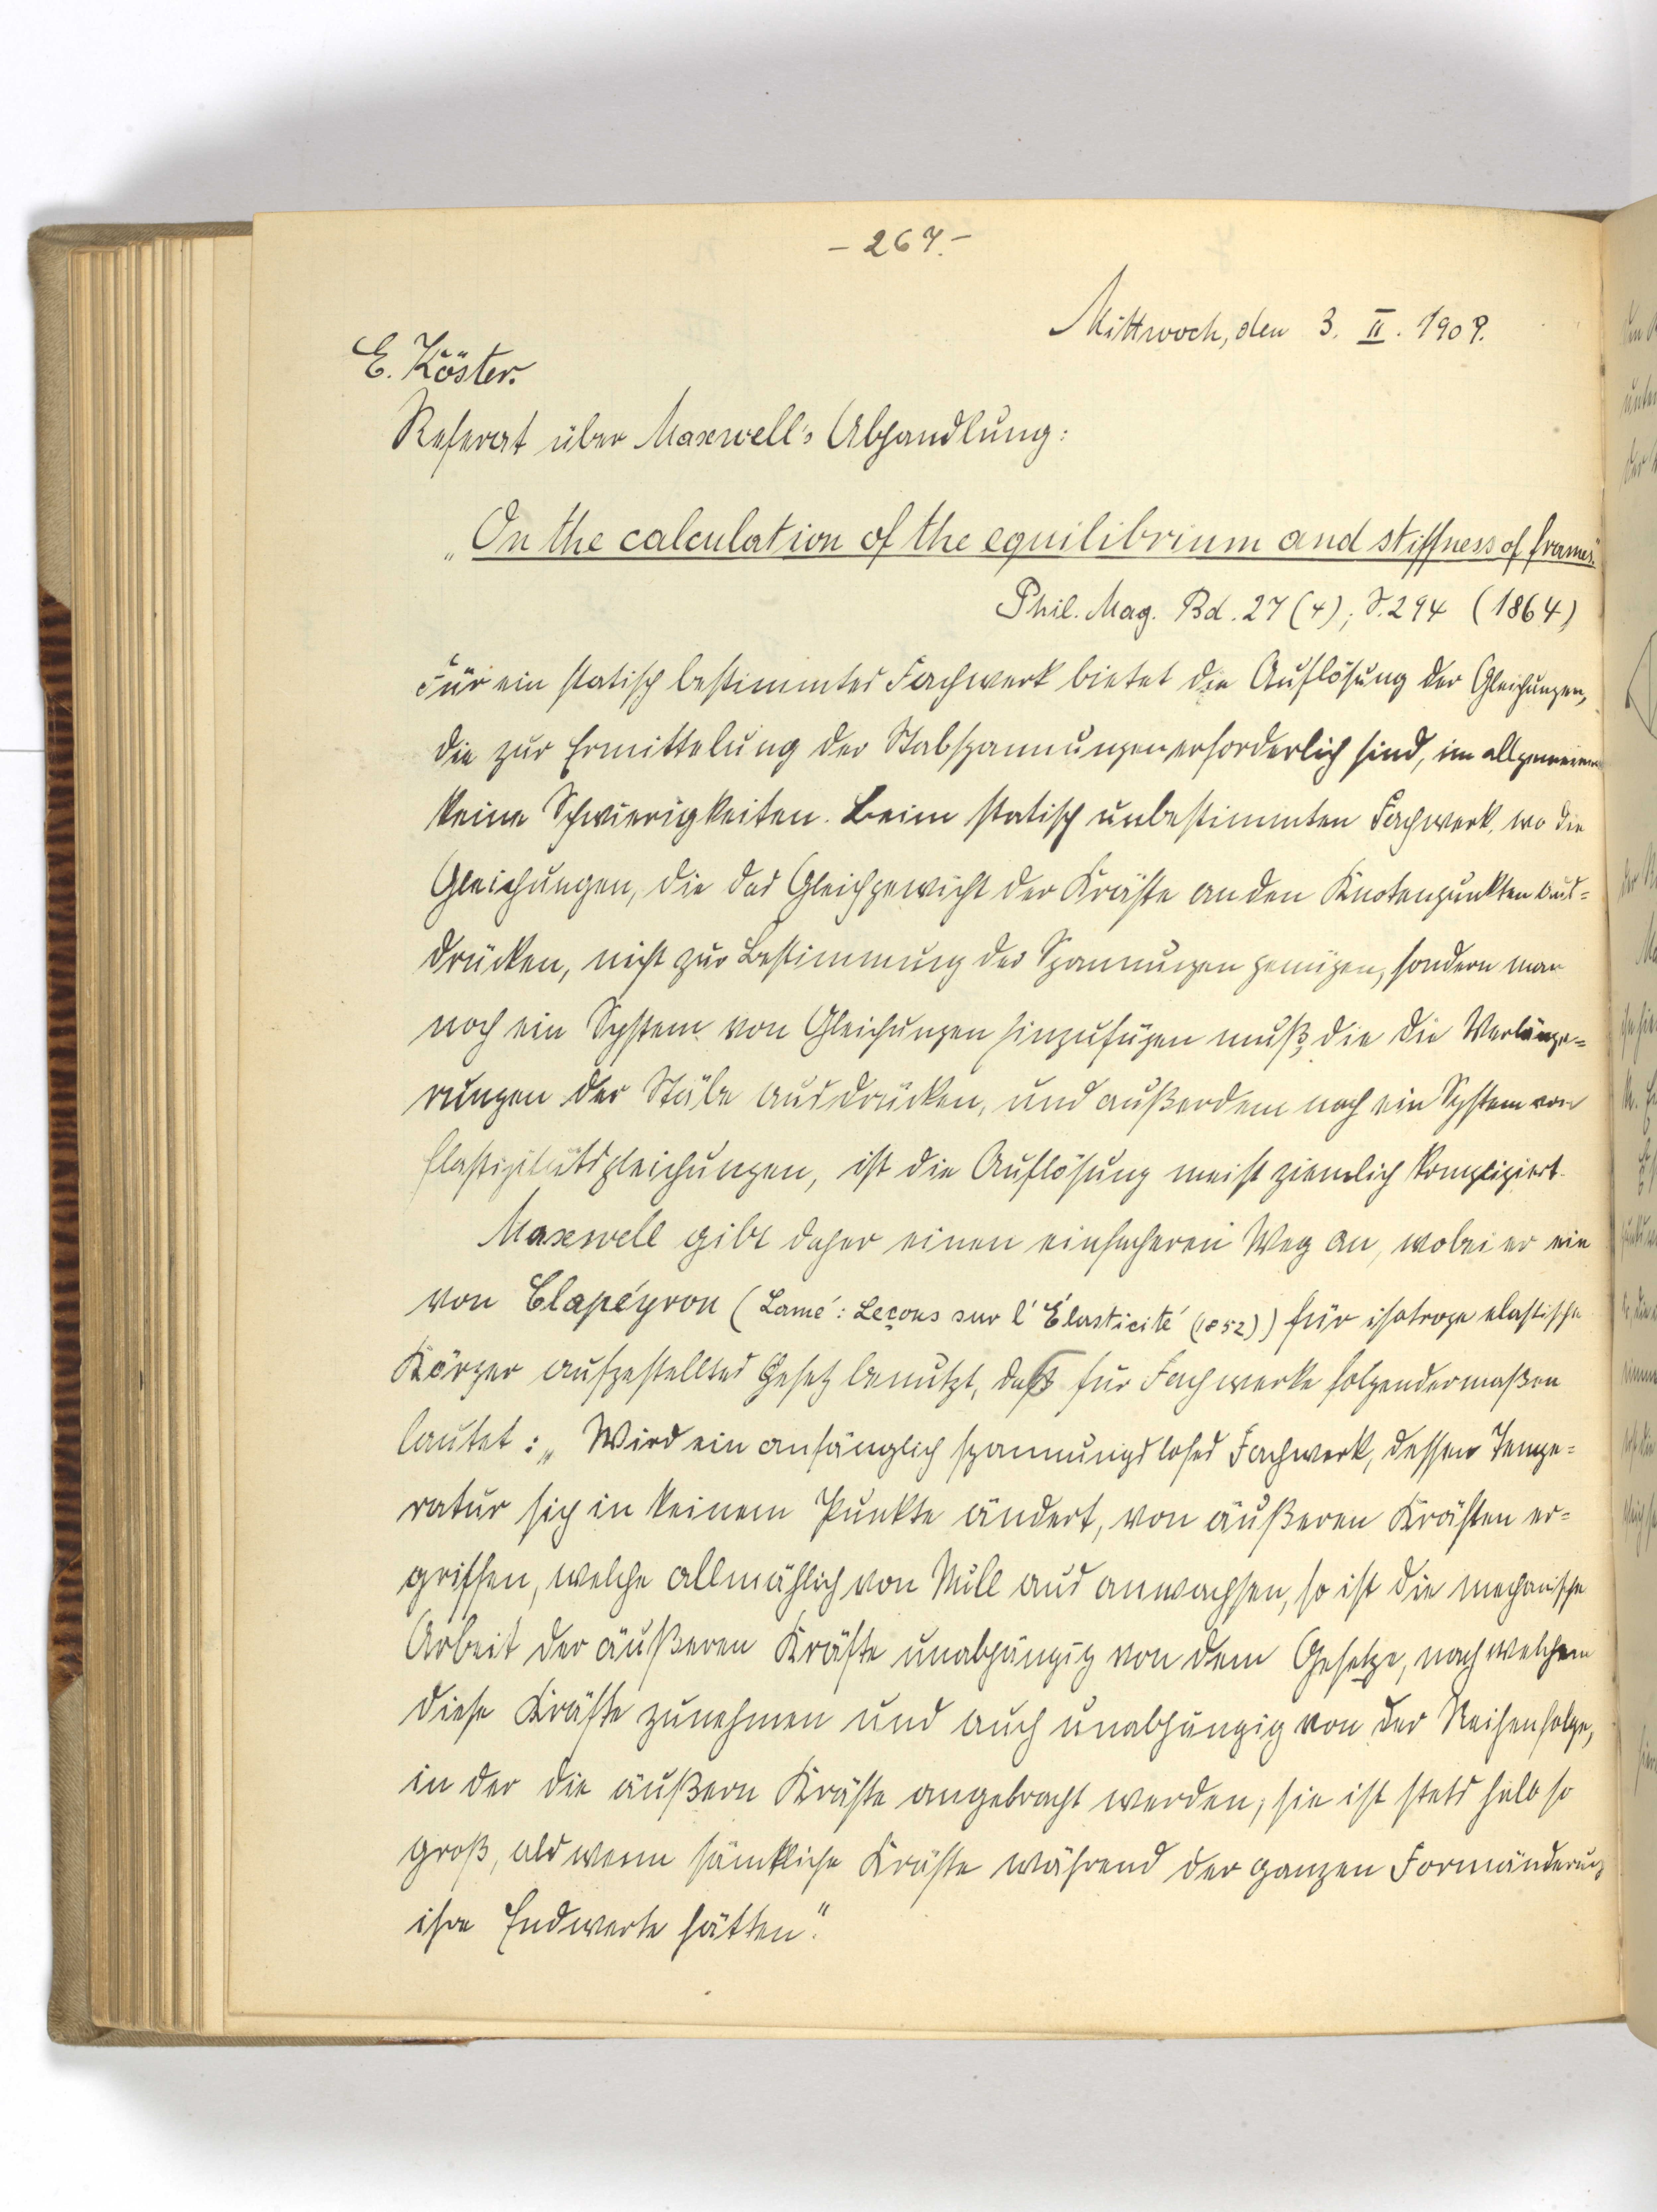 – 267. –
Mittwoch, den 3. II. 1909.
E. Köster.
Referat über Maxwell's Abhandlung:
„On the calculation of the equilibrium and stiffness of frames."
Phil. Mag. Bd. 27 (4); S. 294 (1864)
Für ein statisch bestimmtes Fachwerk bietet die Auflösung der Gleichungen,
die zur Ermittelung der Stabspannungen erforderlich sind, im allgemeinen
keine Schwierigkeiten. Beim statisch unbestimmten Fachwerk, wo die
Gleichungen, die das Gleichgewicht der Kräfte an den Knotenpunkten aus=
drücken, nicht zur Bestimmung der Spannungen genügen, sondern man
noch ein System von Gleichungen hinzufügen muß, die die Verlänge=
rungen der Stäbe ausdrücken, und außerdem noch ein System von
Elastizitätsgleichungen, ist die Auflösung meist ziemlich kompliziert.
Maxwell gibt daher einen einfacheren Weg an, wobei er ein
von Clapéyron (Lamé: Leçons sur l'Élasticité (1852)) für isotrope elastische
Körper aufgestelltes Gesetz benutzt, das für Fachwerke folgendermaßen
lautet: „Wird ein anfänglich spannungsloses Fachwerk, dessen Tempe=
ratur sich in keinem Punkte ändert, von äußeren Kräften er=
griffen, welche allmählich von Null aus anwachsen, so ist die mechanische
Arbeit der äußeren Kräfte unabhängig von dem Gesetze, nach welchem
diese Kräfte zunehmen und auch unabhängig von der Reihenfolge,
in der die äußern Kräfte angebracht werden; sie ist stets halb so
groß, als wenn sämtliche Kräfte während der ganzen Formänderung
ihre Endwerte hätten."